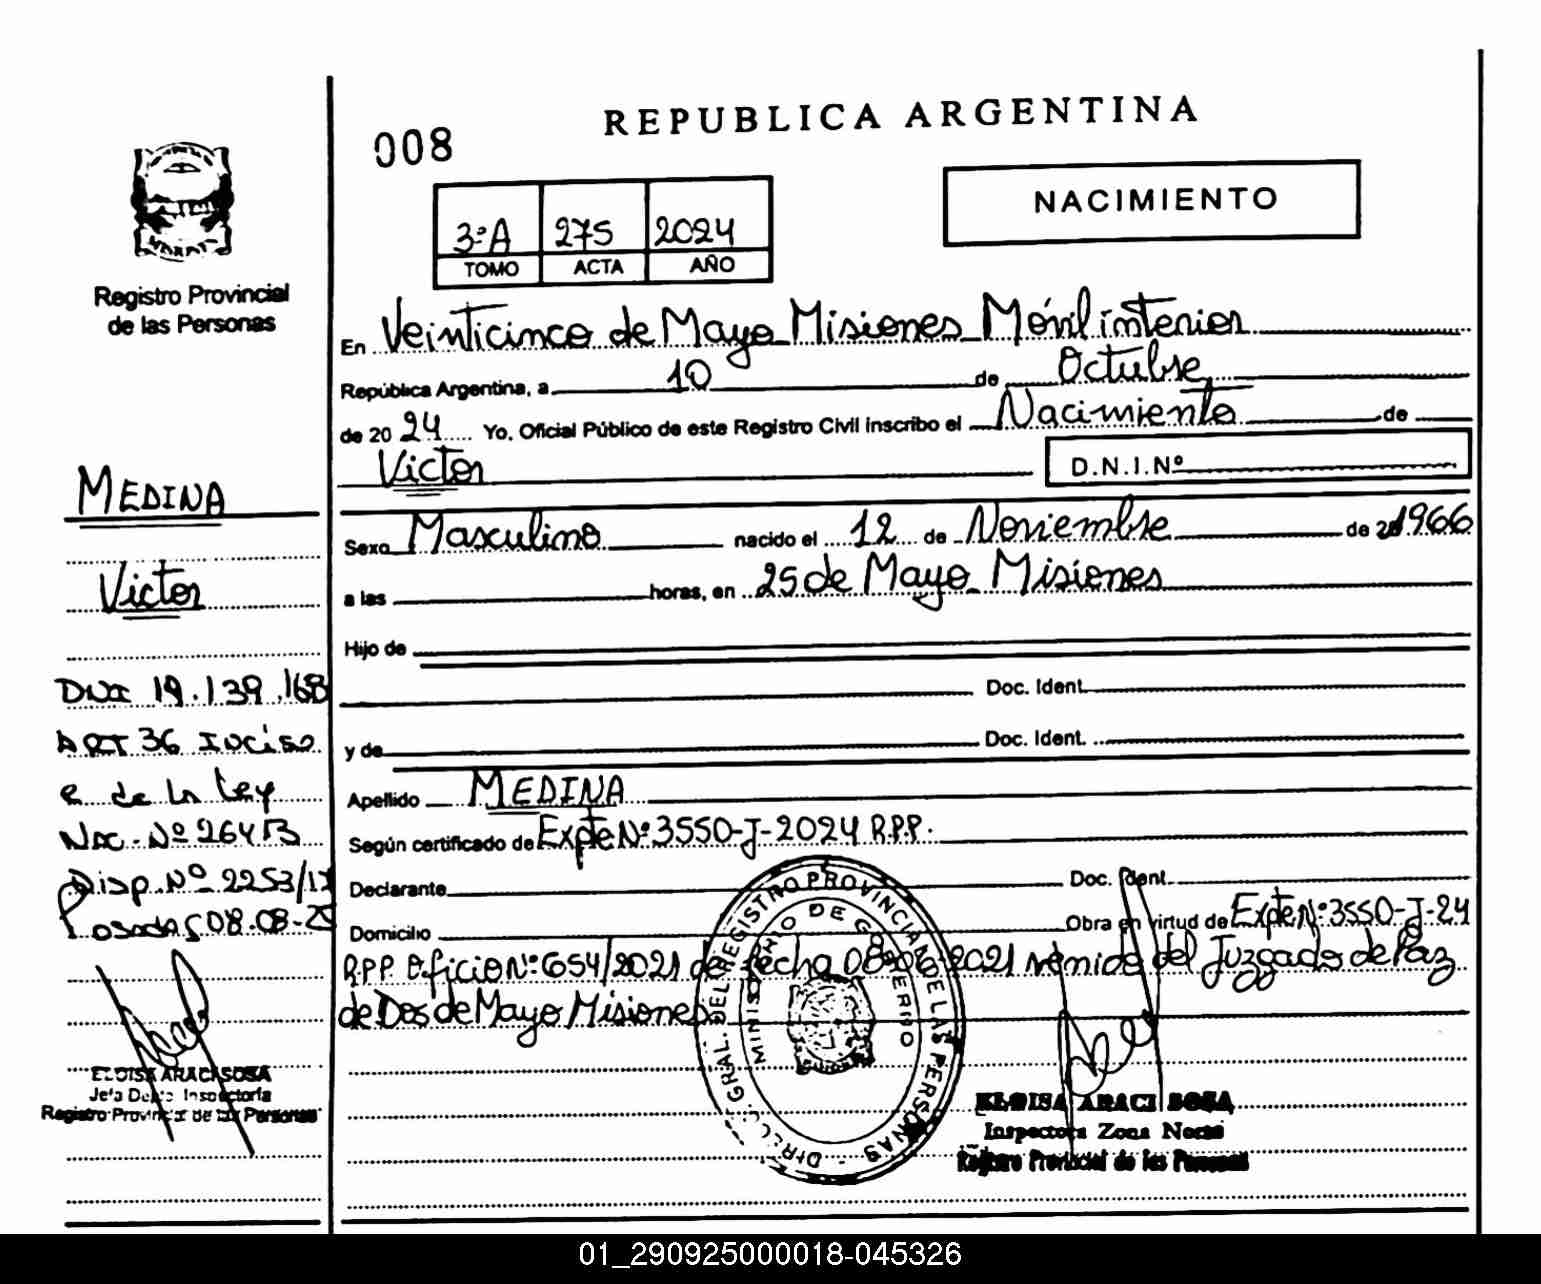 REPUBLICA ARGENTINA
008
NACIMIENTO
3ºA 275 2024
TOMO ACTA AÑO
Registro Provincial
de las Personas
En Veinticinco de Mayo Misiones Móvil interior
República Argentina, a 10 de Octubre
de 20 24 Yo, Oficial Público de este Registro Civil inscribo el Nacimiento de
Victor D.N.I.Nº
Sexo Masculino nacido el 12 de Noviembre de 1966
a las horas, en 25 de Mayo Misiones
Hijo de
Doc. Ident.
y de Doc. Ident.
Apellido MEDINA
Según certificado de Expte Nº 3550-J-2024 R.P.P.
Declarante Doc. Ident.
Domicilio Obra en virtud de Expte Nº 3550-J-24
R.P.P. Oficio Nº 654/2021 de fecha 2021 venido del Juzgado de Paz
de Dos de Mayo Misiones
MEDINA
Victor
DNI 19.139.168
ART 36 INCISO
e de la Ley
Nac. Nº 26413
Disp. Nº 2253/17
Posadas 08-08-25
ELOISA ARACI SOSA
Jefa Inspectoria
Registro Provincial de las Personas
DIRECC. GRAL. DEL REGISTRO PROVINCIAL DE LAS PERSONAS
MINISTERIO DE GOBIERNO
ELOISA ARACI SOSA
Inspectora Zona Norte
Registro Provincial de las Personas
01_290925000018-045326